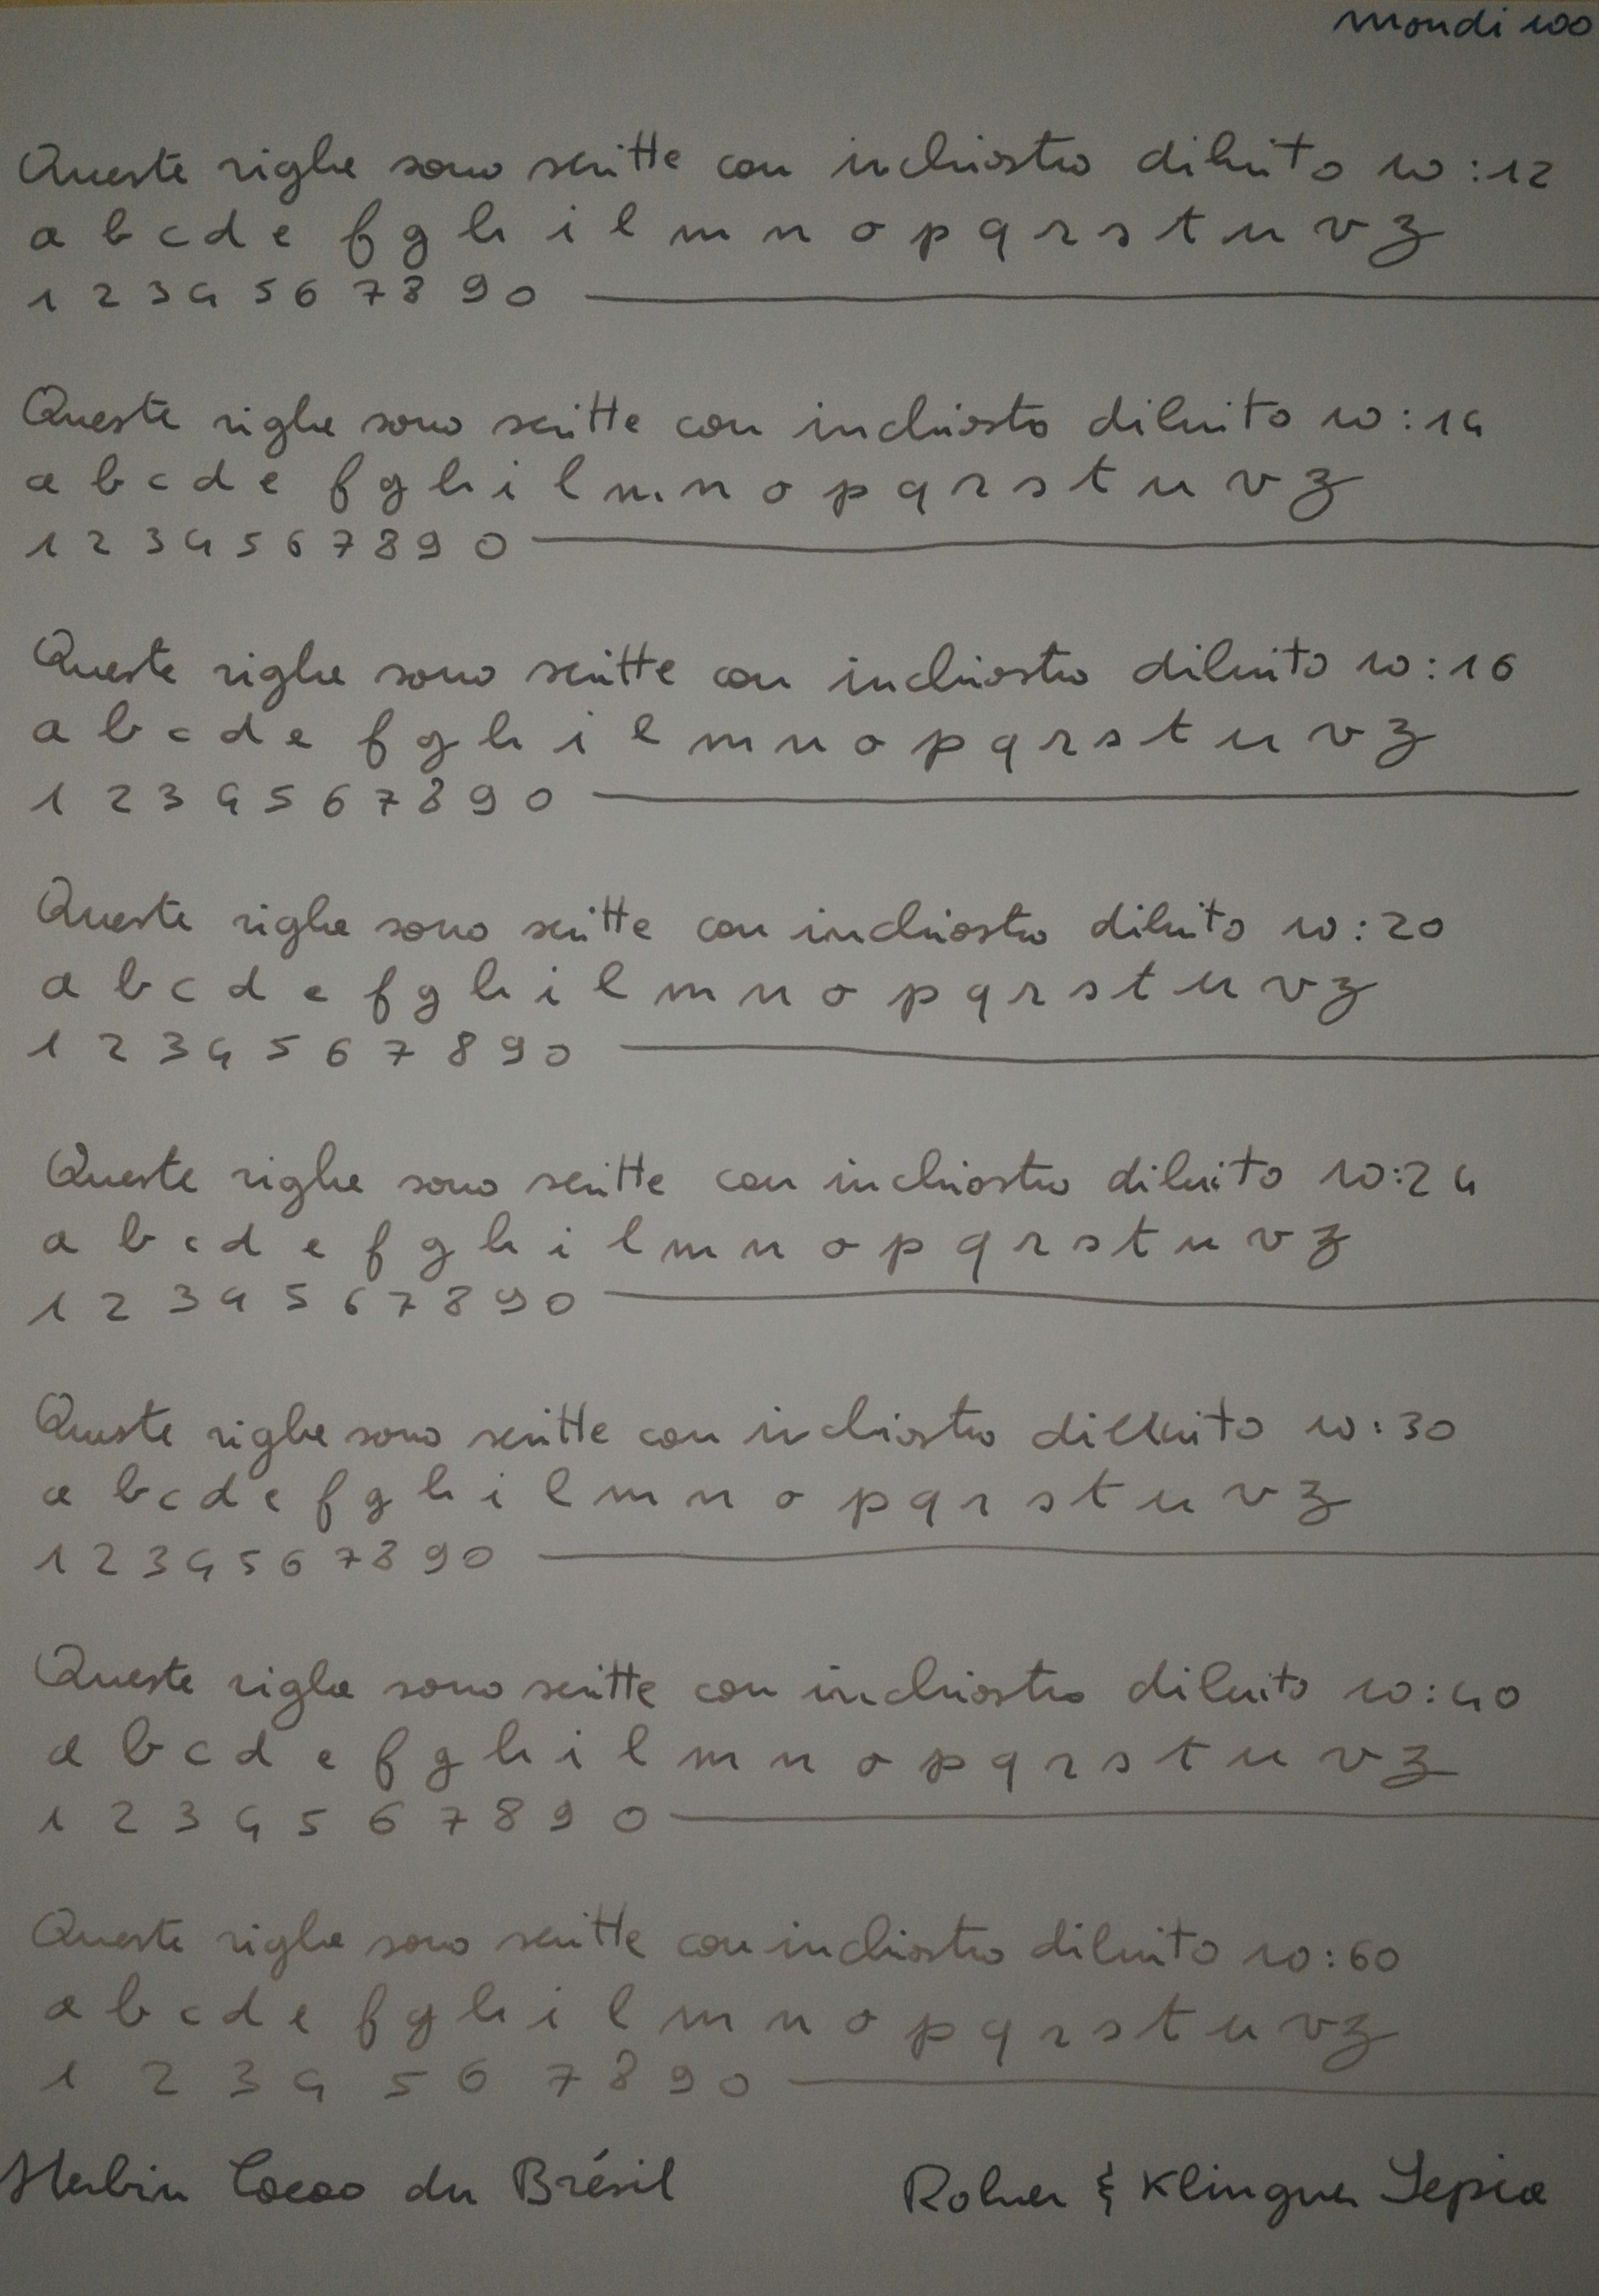 mondi 100
Queste righe sono scritte con inchiostro diluito 10:12
a b c d e f g h i l m n o p q r s t u v z
1 2 3 4 5 6 7 8 9 0
Queste righe sono scritte con inchiosto diluito 10:14
a b c d e f g h i l m n o p q r s t u v z
1 2 3 4 5 6 7 8 9 0
Queste righe sono scritte con inchiostro diluito 10:16
a b c d e f g h i l m n o p q r s t u v z
1 2 3 4 5 6 7 8 9 0
Queste righe sono scritte con inchiostro diluito 10:20
a b c d e f g h i l m n o p q r s t u v z
1 2 3 4 5 6 7 8 9 0
Queste righe sono scritte con inchiostro diluito 10:24
a b c d e f g h i l m n o p q r s t u v z
1 2 3 4 5 6 7 8 9 0
Queste righe sono scritte con inchiostro diluito 10:30
a b c d e f g h i l m n o p q r s t u v z
1 2 3 4 5 6 7 8 9 0
Queste righe sono scritte con inchiostro diluito 10:40
a b c d e f g h i l m n o p q r s t u v z
1 2 3 4 5 6 7 8 9 0
Queste righe sono scritte con inchiostro diluito 10:60
a b c d e f g h i l m n o p q r s t u v z
1 2 3 4 5 6 7 8 9 0
Herbin Cacao du Brésil Rohrer & Klingner Sepia